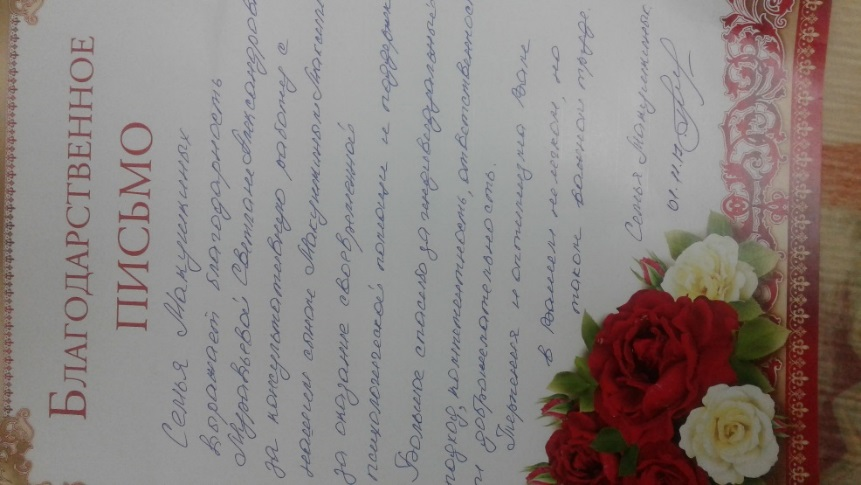 БЛАГОДАРСТВЕННОЕ
ПИСЬМО
Семья Макушкиных
выражает благодарность
Муравьевой Светлане Александров
за консультативную работу с
нашим сыном Макушкиным
за оказание своевременной
психологической помощи и поддержк
Большое спасибо за индивидуальный
подход, компетентность, ответственнос
и доброжелательность.
Терпения и оптимизма Вам
в Вашем нелегком, но
таком важном труде.
Семья Макушкиных